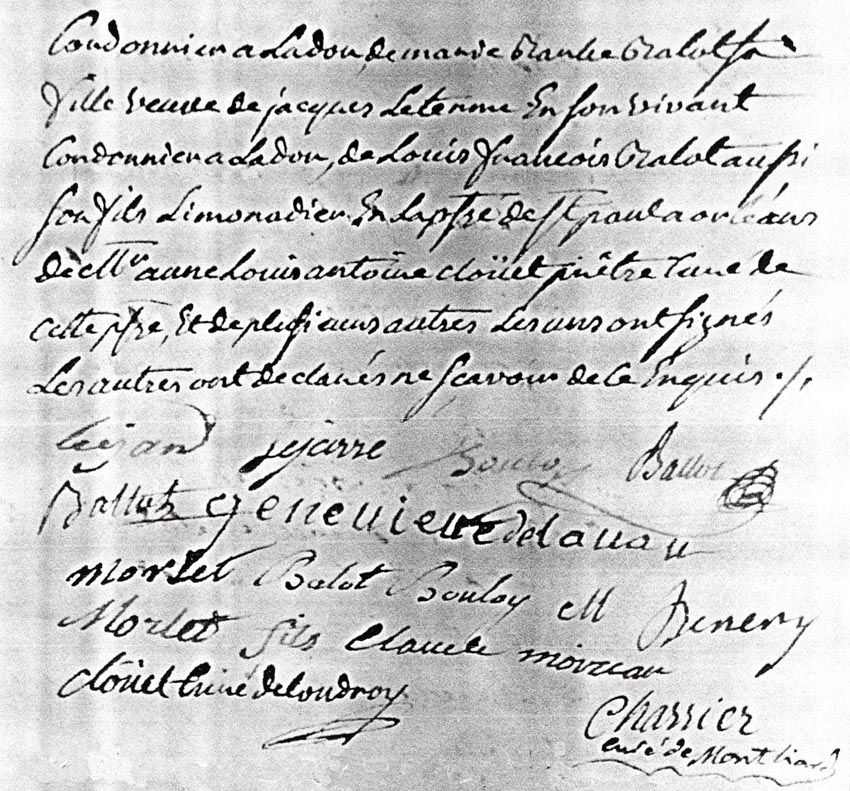 Cordonnier a Ladon, de marie Ballot sa
fille veuve de jacques Leterme En son vivant
Cordonnier a Ladon, de Louis françois Balot aussi
son fils Limonadier En la psse de St paul a orléans
de Mr Louis antoine cloüet prêtre Curé de
cette psse, Et de plusieurs autres Les uns ont signés
Les autres ont declarés ne scavoir de ce Enquis ./.
Lejard Lejarre Bouloy Ballot
Ballot genevieve delavau
morlet Balot Bouloy M
Morlet fils Claude moreau
cloüet Curé de Coudroy
Charrier
curé de Montliard